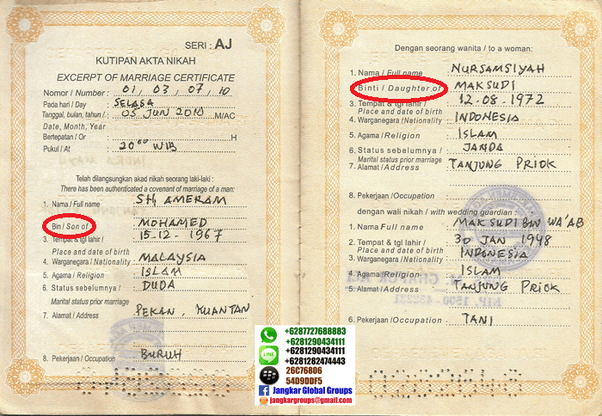 SERI : AJ
KUTIPAN AKTA NIKAH
EXCERPT OF MARRIAGE CERTIFICATE
Nomor / Number : 01, 03, 07, 10
Pada hari / Day : SELASA
Tanggal, bulan, tahun / 05 JUNI 2010 M/AC
Date, Month, Year
Bertepatan / Or H
Pukul / At 20⁰⁰ WIB
Telah dilangsungkan akad nikah seorang laki-laki :
There has been authenticated a covenant of marriage of a man:
1. Nama / Full name
AMERAM
Bin / Son of MOHAMED
3. Tempat & tgl lahir / 15-12-1967
Place and date of birth
4. Warganegara / Nationality MALAYSIA
5. Agama / Religion ISLAM
6. Status sebelumnya / DUDA
Marital status prior marriage
7. Alamat / Address PEKAN, KUANTAN
8. Pekerjaan / Occupation BURUH
Dengan seorang wanita / to a woman:
1. Nama / Full name NURSAMSIYAH
Binti / Daughter of MAKSUDI
3. Tempat & tgl lahir / 12-08-1972
Place and date of birth
4. Warganegara / Nationality INDONESIA
5. Agama / Religion ISLAM
6. Status sebelumnya / JANDA
Marital status prior marriage
7. Alamat / Address TANJUNG PRIOK
8. Pekerjaan / Occupation
dengan wali nikah / with wedding guardian :
1. Nama / Full name MAKSUDI BIN WA'AB
2. Tempat & tgl lahir / 30 JAN 1948
Place and date of birth
3. Warganegara / Nationality INDONESIA
4. Agama / Religion ISLAM
5. Alamat / Address TANJUNG PRIOK
6. Pekerjaan / Occupation TANI
+6287727688883
+6281290434111
+6281290434111
+6281282474443
26C76806
54D9DDF5
Jangkar Global Groups
jangkargroups@gmail.com